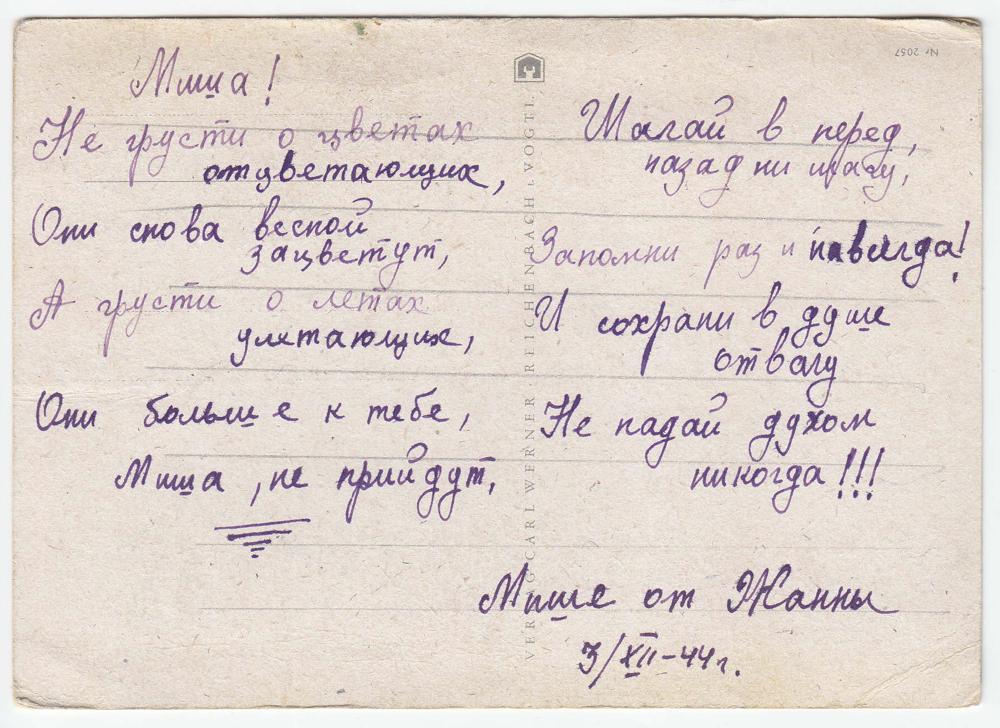 Миша!
Не грусти о цветах
отцветающих,
Они снова весной
зацветут,
А грусти о летах
улетающих,
Они больше к тебе,
Миша, не прийдут,
Шагай в перед,
назад ни шагу,
Запомни раз и навсегда!
И сохрани в душе
отвагу
Не падай духом
никогда!!!
Мише от Жанны
3/XII-44г.
VERLAG CARL WERNER · REICHENBACH I. VOGTL.
Nr 2057